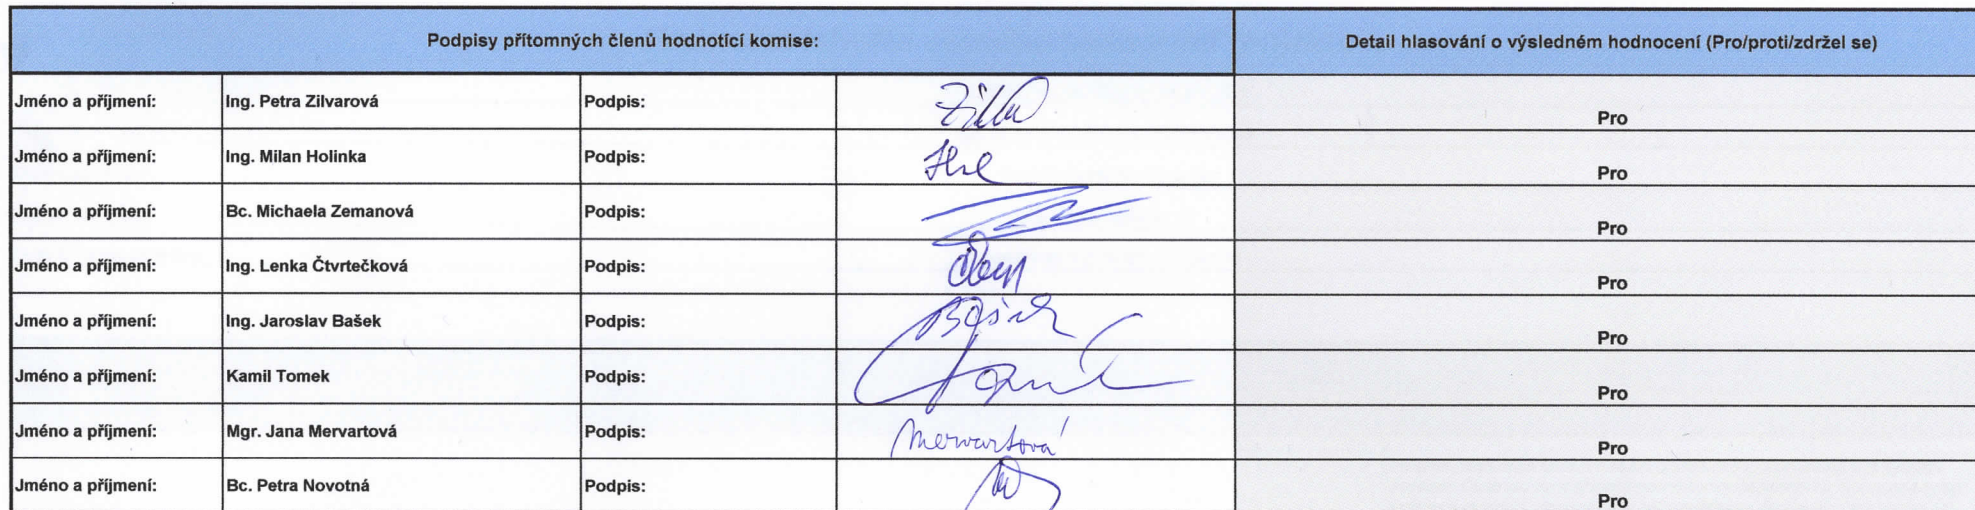 Podpisy přítomných členů hodnotící komise: Detail hlasování o výsledném hodnocení (Pro/proti/zdržel se)
Jméno a příjmení: Ing. Petra Zilvarová Podpis: Pro
Jméno a příjmení: Ing. Milan Holinka Podpis: Pro
Jméno a příjmení: Bc. Michaela Zemanová Podpis: Pro
Jméno a příjmení: Ing. Lenka Čtvrtečková Podpis: Pro
Jméno a příjmení: Ing. Jaroslav Bašek Podpis: Pro
Jméno a příjmení: Kamil Tomek Podpis: Pro
Jméno a příjmení: Mgr. Jana Mervartová Podpis: Mervartová Pro
Jméno a příjmení: Bc. Petra Novotná Podpis: Pro